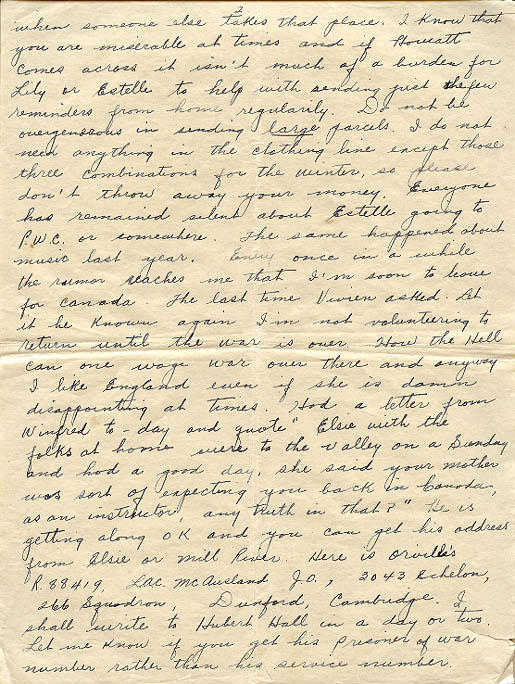 2
when someone else takes that place. I know that
you are miserable at times and if Howatt
comes across it isn't much of a burden for
Lily or Estelle to help with sending just the few
reminders from home regularly. Do not be
overgenerous in sending large parcels. I do not
need anything in the clothing line except those
three combinations for the winter, so please
don't throw away your money. Everyone
has remained silent about Estelle going to
P.W.C. or somewhere. The same happened about
music last year. Every once in a while
the rumor reaches me that I'm soon to leave
for Canada. The last time Vivien asked. Let
it be known again I'm not volunteering to
return until the war is over. How the Hell
can one wage war over there and anyway
I like England even if she is damn
disappointing at times. Had a letter from
Winfred to-day and quote "Elsie with the
folks at home were to the valley on a Sunday
and had a good day, she said your mother
was sort of expecting you back in Canada,
as an instructor, any truth in that?" He is
getting along OK and you can get his address
from Elsie or Mill River. Here is Orville's
R.88419, LAC. McAusland J.O., 3043 Echelon,
266 Squadron, Duxford, Cambridge. I
shall write to Hubert Hall in a day or two.
Let me know if you get his prisoner of war
number rather than his service number.